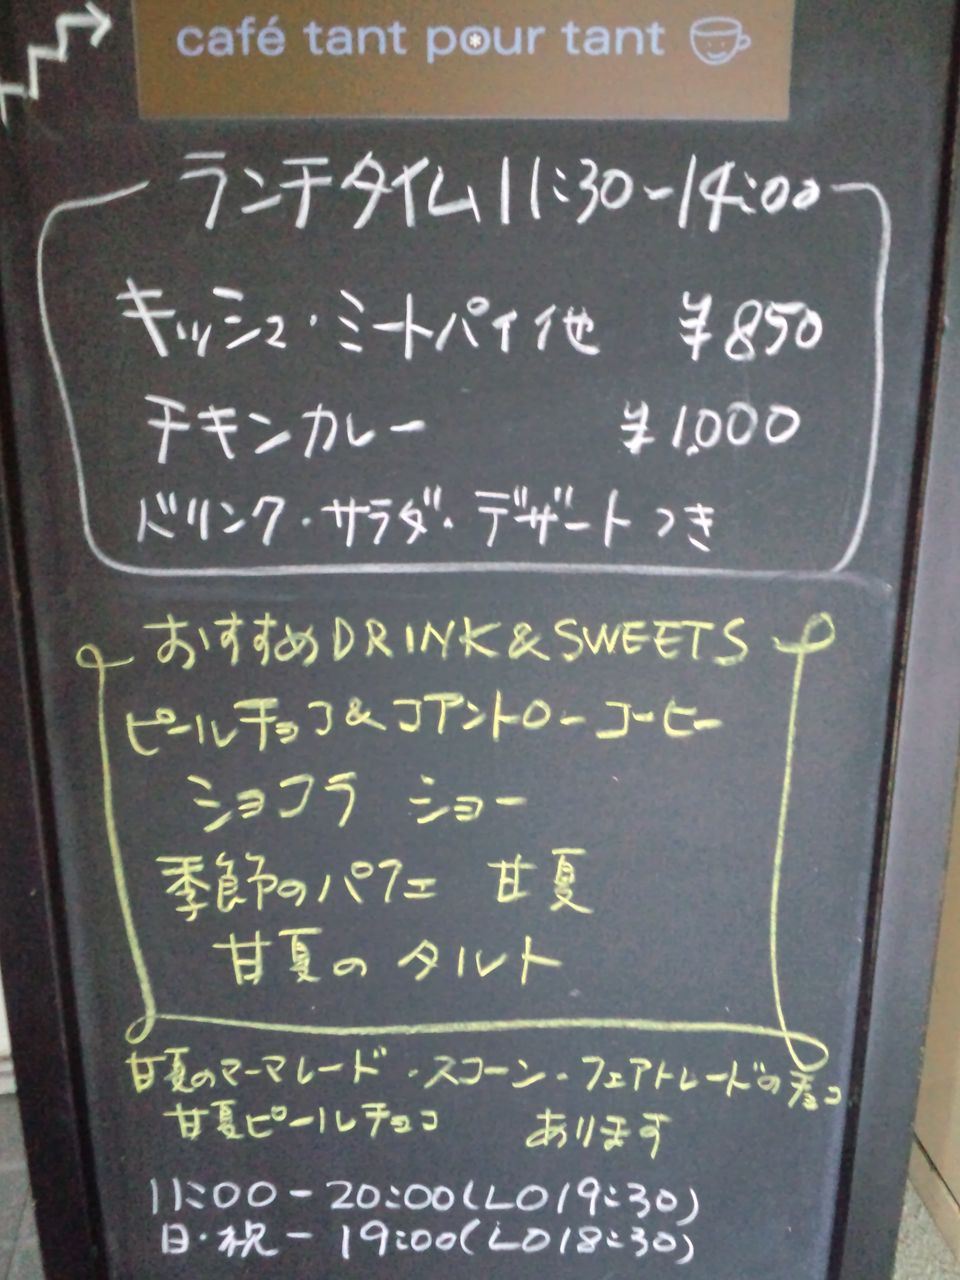 café tant pour tant
ランチタイム 11:30-14:00
キッシュ・ミートパイ 他 ¥850
チキンカレー ¥1,000
ドリンク・サラダ・デザートつき
おすすめDRINK&SWEETS
ピールチョコ&コアントローコーヒー
ショコラ ショー
季節のパフェ 甘夏
甘夏のタルト
甘夏のマーマレード・スコーン・フェアトレードのチョコ
甘夏ピールチョコ あります
11:00-20:00(LO19:30)
日・祝-19:00(LO18:30)